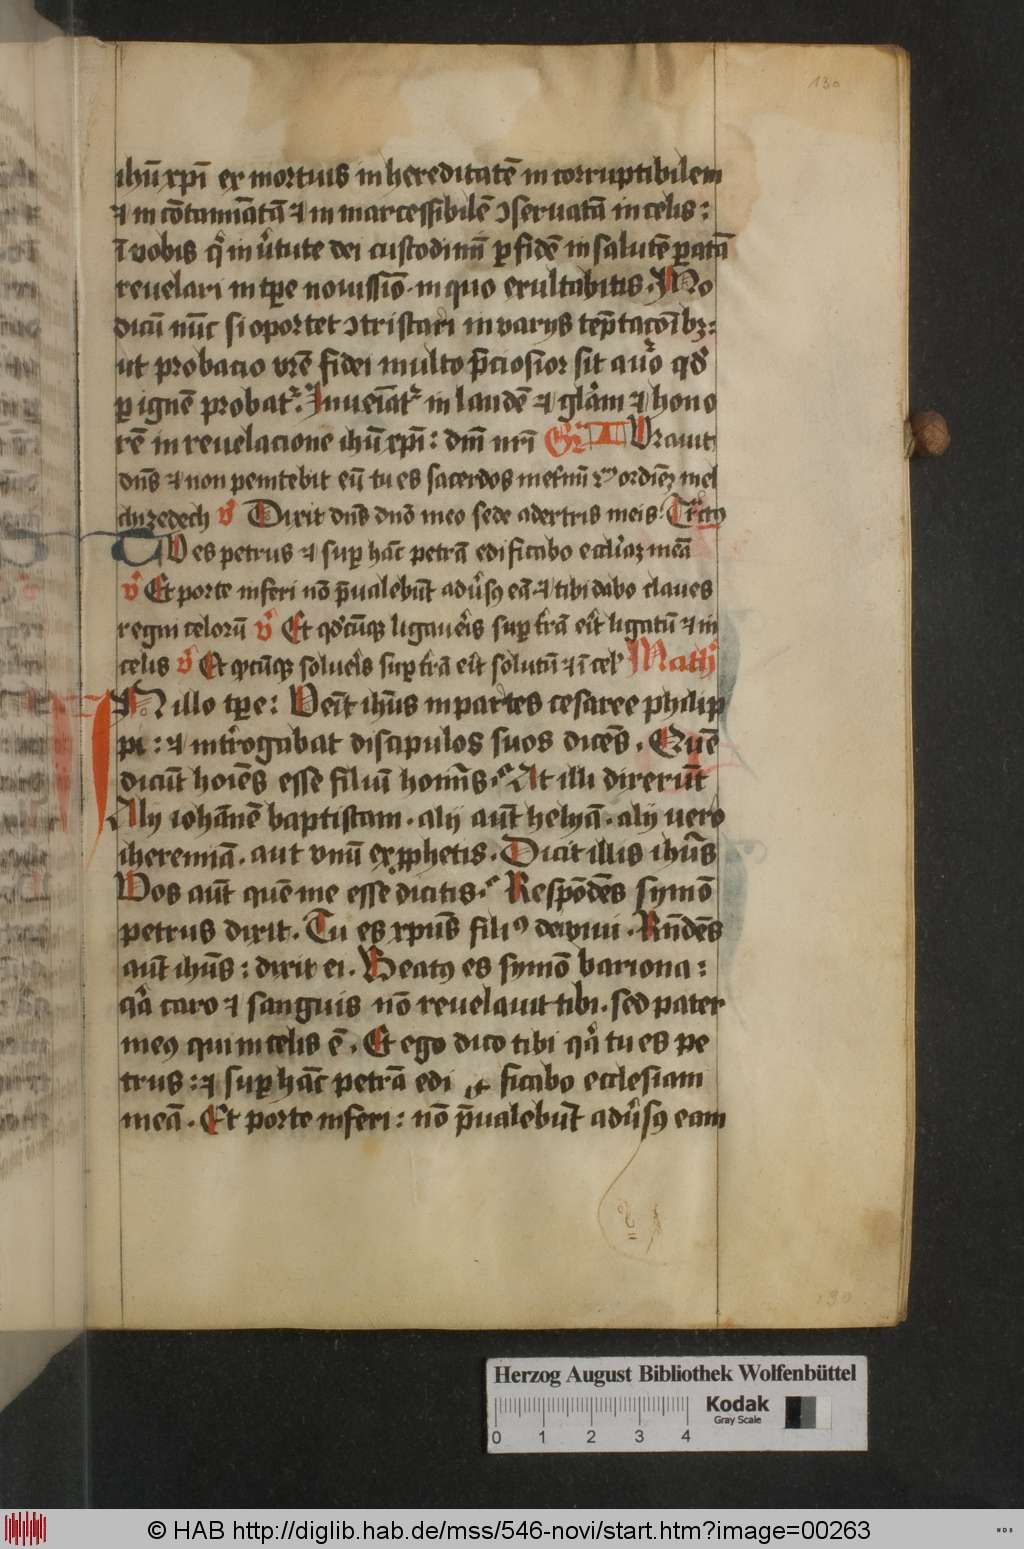 130
ihū xpī ex mortuis in hereditatē in corruptibilem
⁊ in cōtamīatā ⁊ in marcessibilē ꝯseruatā in celis :
ī vobis q̄ in v̓tute dei custodimī ꝑ fidē in salutē ꝑatā
reuelari in tꝑe nouissīo · in quo exultabitis · Mo
dicū nūc si oportet ꝯtristari in varys tēptacōībꝫ :
ut probacio vrē fidei multo p̄ciosior sit auro qd̓
ꝑ ignē probat᷑ . Inueīat᷑ in laudē ⁊ gl̓am ⁊ hono
rē in reuelacione ihū xpī : dnī nrī Gͬ Jurauit
dn̄s ⁊ non penitebit eū tu es sacerdos ineternū ordinē mel
chizedech v̓ Dixit dn̄s dnō meo sede adextris meis Tractꝯ
Tu es petrus ⁊ suꝑ hāc petrā edificabo eccliaꝫ meā
v̓ Et porte inferi nō p̄ualebūt adu̓sꝯ eā ⁊ tibi dabo claues
regni celorū v̓ Et qd̓cūqꝫ ligaueris suꝑ t̓rā erit ligatū ⁊ in
celis v̓ Et qd̓cūqꝫ solueris suꝑ t̓rā erit solutū ⁊ ī cel̓ Math̓
IN illo tꝑe : Venīt ihūs in partes cesaree philip
pi : ⁊ intr̓ogabat discipulos suos dicēs . Quē
dicūt hoīes esse filiū homīs . At illi dixerūt
Aly iohānē baptistam . alij aūt helyā . alij vero
iheremiā . aut vnū ex ꝓphetis . Dicit illis ihūs
Vos aūt quē me esse dicitis . Respōdēs symō
petrus dixit . Tu es xpūs filiꝯ dei viui . Rn̄dēs
aūt ihūs : dixit ei . Beatꝯ es symō bariona :
q̓a caro ⁊ sanguis nō reuelauit tibi . sed pater
meꝯ qui in celis ē . Et ego dico tibi q̓a tu es pe
trus : ⁊ suꝑ hāc petrā edi ficabo ecclesiam
meā . Et porte inferi : nō p̄ualebūt adu̓sꝯ eam
130
Herzog August Bibliothek Wolfenbüttel
Kodak
Gray Scale
0 1 2 3 4
© HAB http://diglib.hab.de/mss/546-novi/start.htm?image=00263